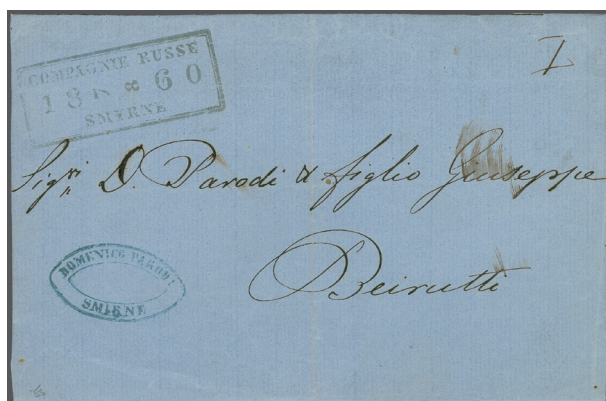 COMPAGNIE RUSSE
18 60
SMYRNE
I
Sigri D. Parodi & figlio Giuseppe
Beirutti
DOMENICO PARODI
SMIRNE